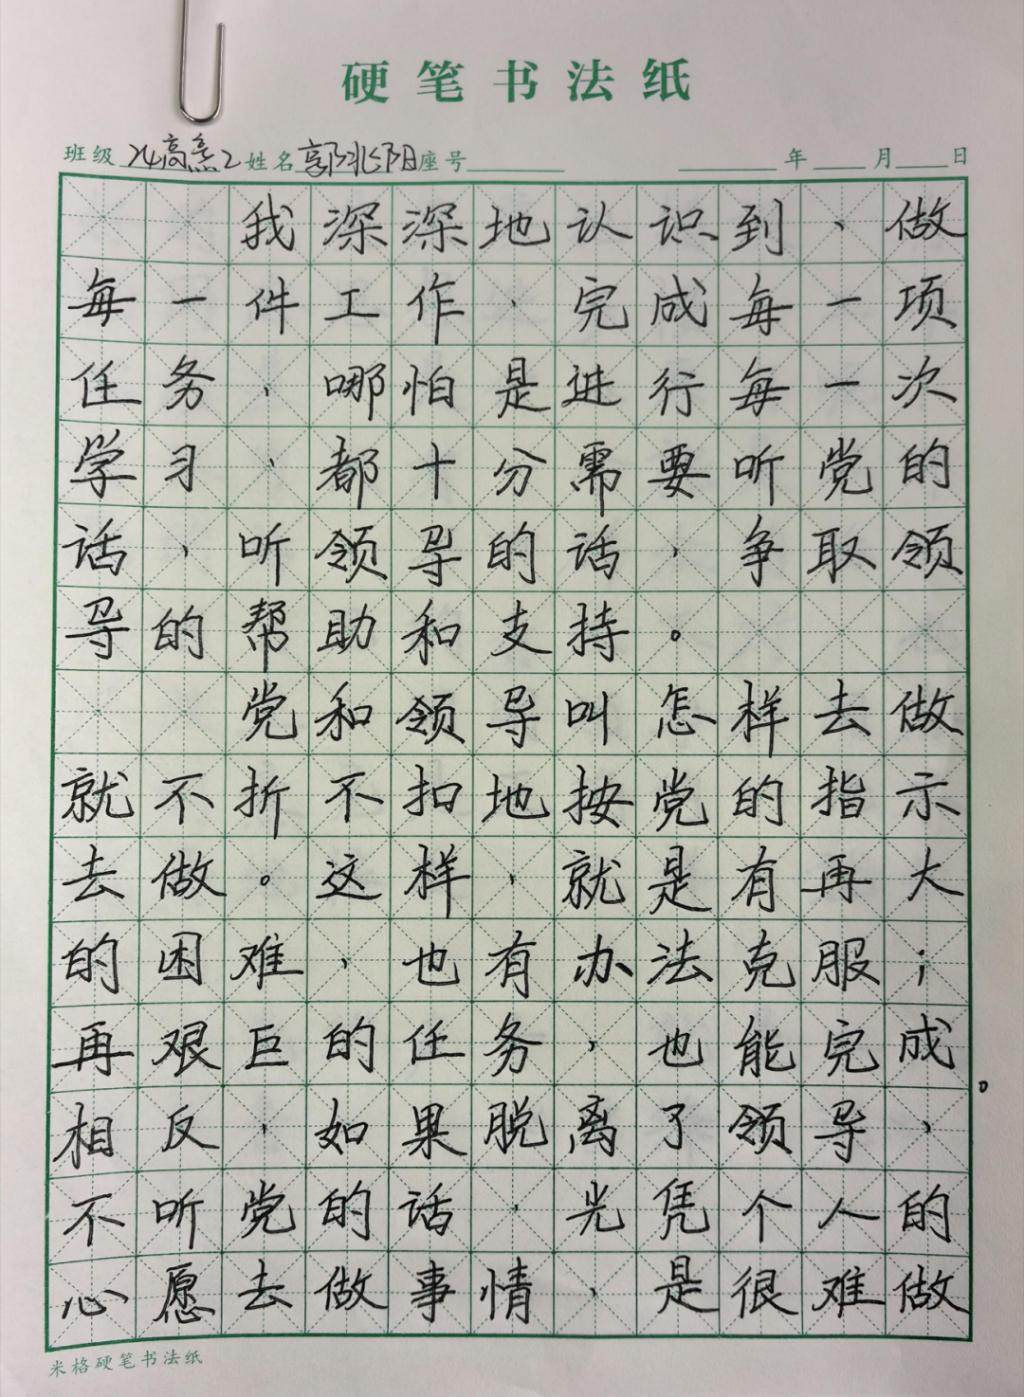 硬笔书法纸
班级 24高 2 姓名 郭 阳 座号 年 月 日
我深深地认识到、做
每一件工作、完成每一项
任务、哪怕是进行每一次
学习、都十分需要听党的
话，听领导的话，争取领
导的帮助和支持。
党和领导叫怎样去做
就不折不扣地按党的指示
去做。这样，就是有再大
的困难、也有办法克服；
再艰巨的任务，也能完成。
相反，如果脱离了领导、
不听党的话，光凭个人的
心愿去做事情，是很难做
米格硬笔书法纸